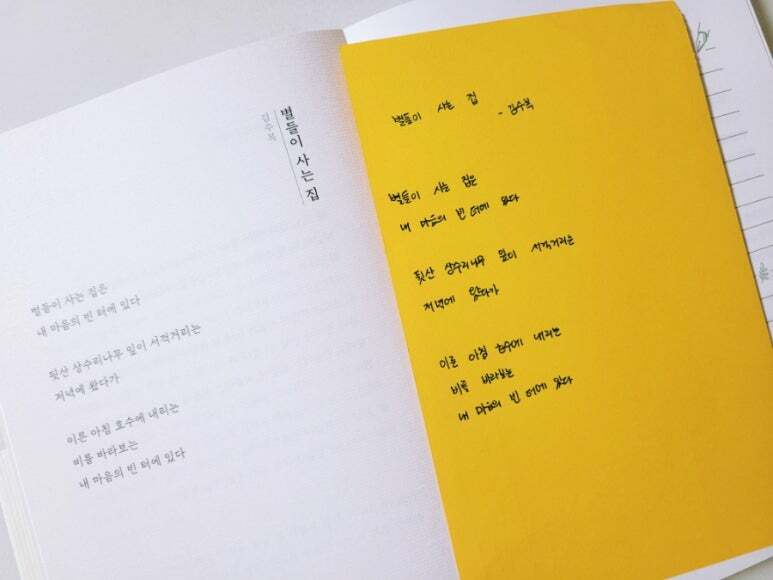 별들이 사는 집
김수복
별들이 사는 집은
내 마음의 빈 터에 있다
뒷산 상수리나무 잎이 서걱거리는
저녁에 왔다가
이른 아침 호수에 내리는
비를 바라보는
내 마음의 빈 터에 있다
별들이 사는 집
- 김수복
별들이 사는 집은
내 마음의 빈 터에 있다
뒷산 상수리나무 잎이 서걱거리는
저녁에 왔다가
이른 아침 호수에 내리는
비를 바라보는
내 마음의 빈 터에 있다